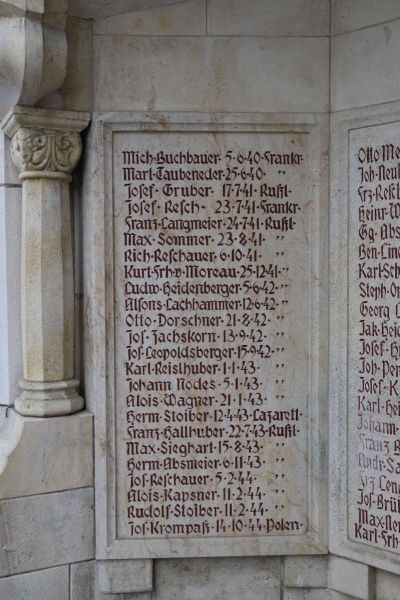 Mich·Buchbauer·5·6·40·Frankr·
Mart·Taubeneder·25·6·40· "
Josef·Gruber·17·7·41·Rußl·
Josef·Resch·23·7·41·Frankr·
Franz·Langmeier·24·7·41·Rußl·
Max·Sommer·23·8·41· "
Rich·Reschauer·6·10·41· "
Kurt·Frh·v·Moreau·25·12·41· "
Ludw·Heidenberger·5·6·42· "
Alfons·Lachhammer·12·6·42· "
Otto·Dorschner·21·8·42· "
Jos·Jachskorn·13·9·42· "
Jos·Leopoldsberger·15·9·42· "
Karl·Reislhuber·1·1·43· "
Johann·Nodes·5·1·43· "
Alois·Wagner·21·1·43· "
Herm·Stoiber·12·4·43·Lazarett
Franz·Hallhuber·22·7·43·Rußl·
Max·Sieghart·15·8·43· "
Herm·Absmeier·6·11·43· "
Jos·Reschauer·5·2·44· "
Alois·Kapsner·11·2·44· "
Rudolf·Stoiber·11·2·44· "
Jos·Krompaß·14·10·44·Polen·
Otto·Me
Joh·Neu
Frz·Resch
Heinr·W
Gg·Abs
Ben·Lin
Karl·Sch
Steph·O
Georg L
Jak·Hei
Josef·H
Joh·Per
Josef·K
Karl·Hei
Johann
Franz
Andr·Sa
Frz Len
Jos·Brül
Max·Ner
Karl·Frh